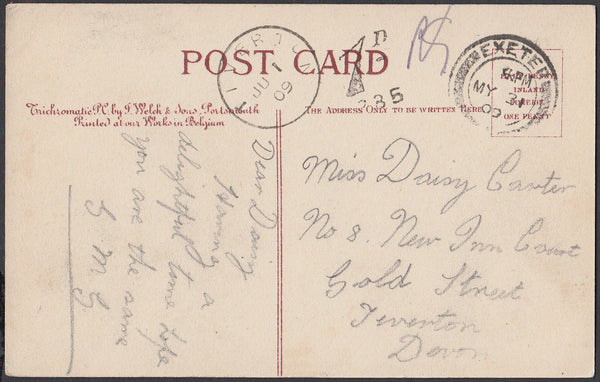 POST CARD
TIVERTON
JU 1
09
1
D
335
EXETER
8 PM
MY 31
09
INLAND
ONE PENNY
Trichromatic P.C. by J. Welch & Sons, Portsmouth
Printed at our Works in Belgium
THE ADDRESS ONLY TO BE WRITTEN HERE
Dear Daisy
Having a
delightful time hope
you are the same
S M G
Miss Daisy Carter
No 8. New Inn Court
Gold Street
Teverton
Devon